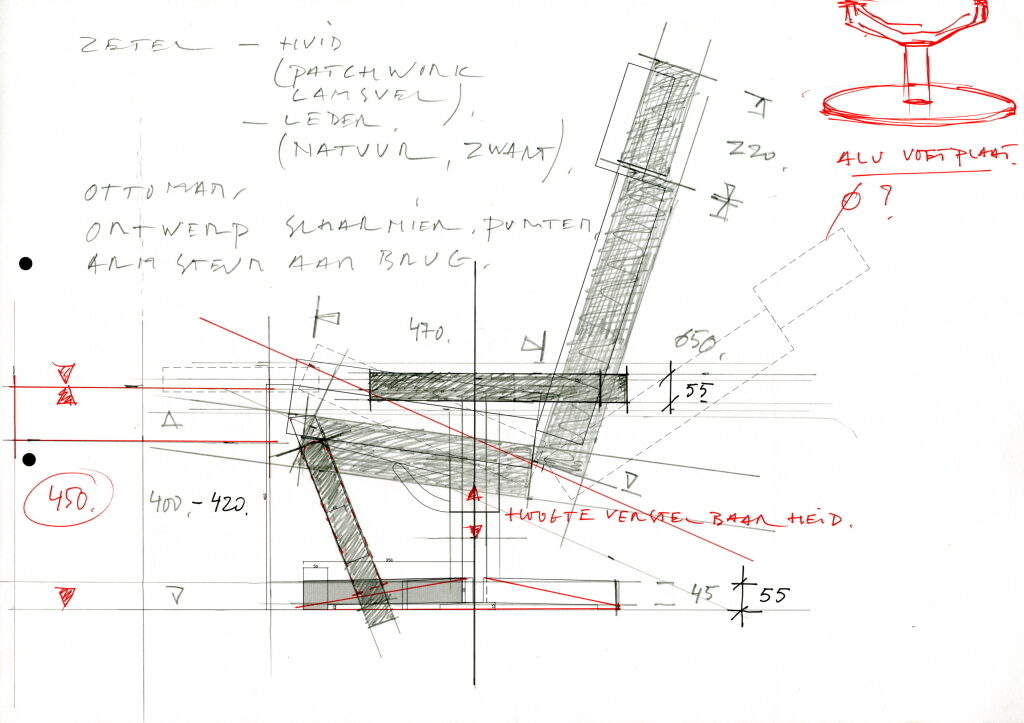 ZETEL - HUID
(PATCHWORK
LAMSVEL).
- LEDER.
(NATUUR, ZWART).
OTTOMAN,
ONTWERP SCHARNIER, PUNTEN,
ARMSTEUN AAN BRUG.
ALU VOETPLAAT.
Ø ?
220.
470.
650.
55
450.
400.-420.
HOOGTE VERSTELBAARHEID.
45
55